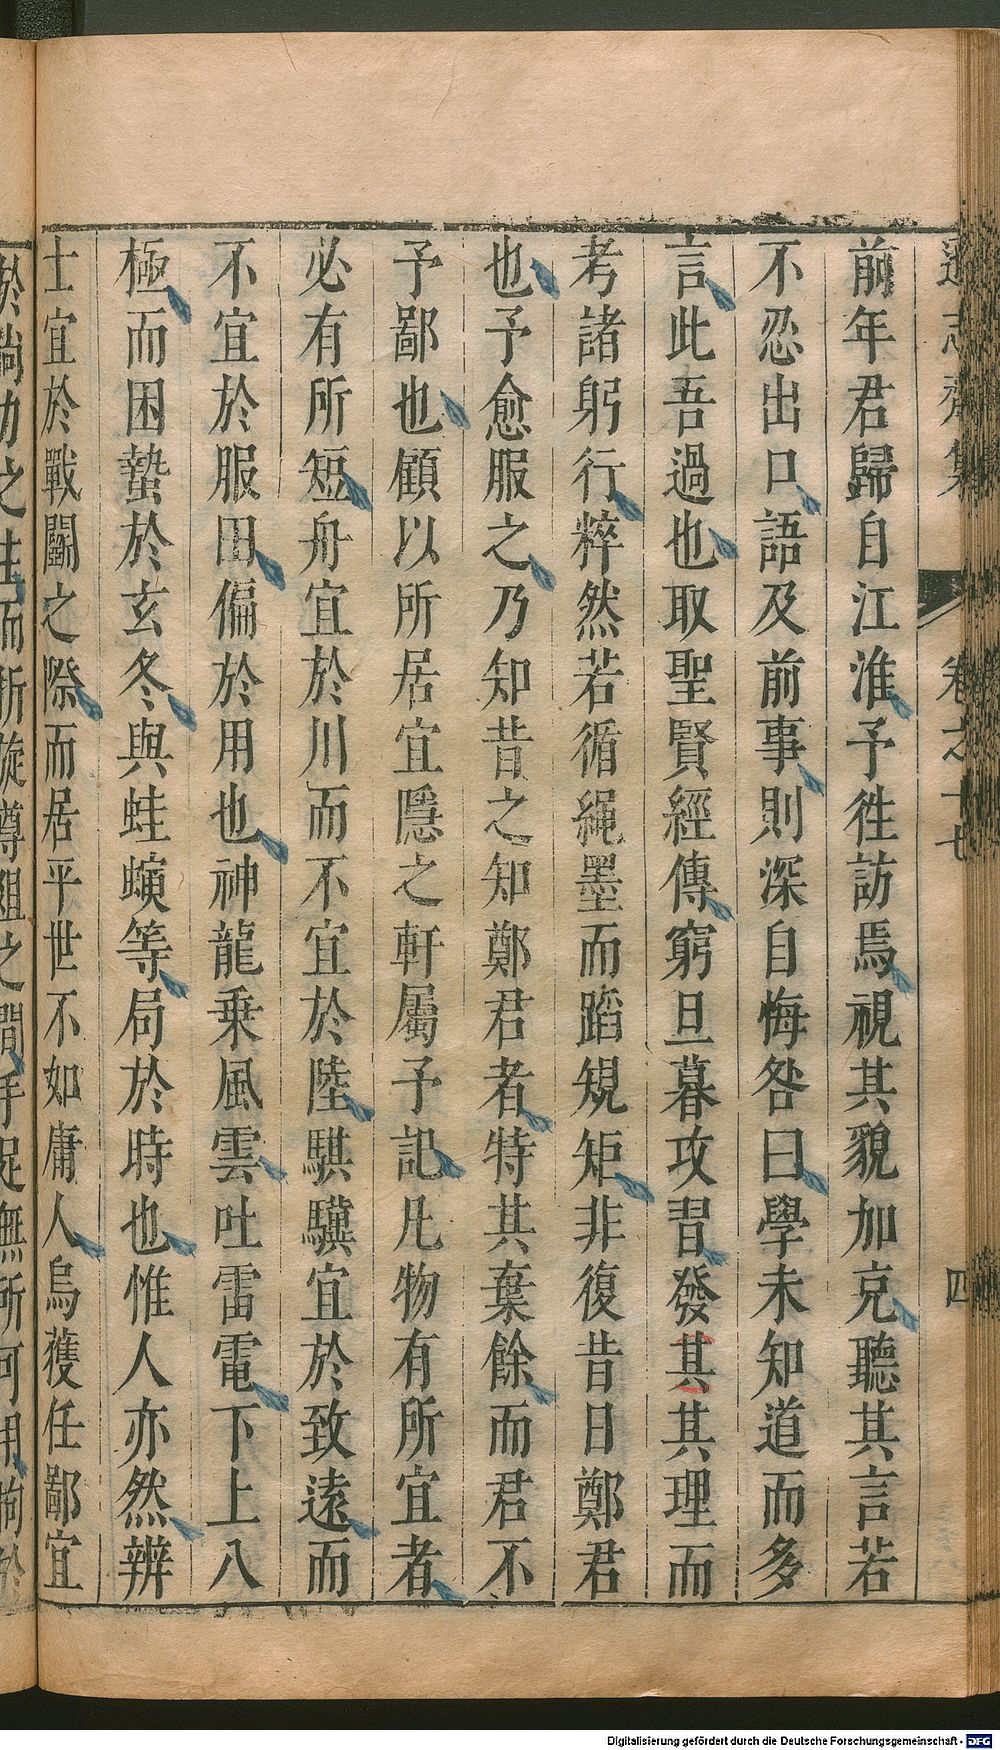 遜志齋集 卷之十七 四
前年君歸自江淮予徃訪焉視其貌加克聽其言若
不忍出口語及前事則深自悔咎曰學未知道而多
言此吾過也取聖賢經傳窮旦暮攻習發其其理而
考諸躬行粹然若循繩墨而蹈規矩非復昔日鄭君
也予愈服之乃知昔之知鄭君者特其棄餘而君不
予鄙也顧以所居宜隱之軒屬予記凡物有所宜者
必有所短舟宜於川而不宜於陸騏驥宜於致遠而
不宜於服田偏於用也神龍乗風雲吐雷電下上八
極而困蟄於玄冬與蛙螾等局於時也惟人亦然辨
士宜於戰鬬之際而居平世不如庸人烏獲任鄙宜
之 而折旋罇爼之間手足無所可用拘於
Digitalisierung gefördert durch die Deutsche Forschungsgemeinschaft - DFG